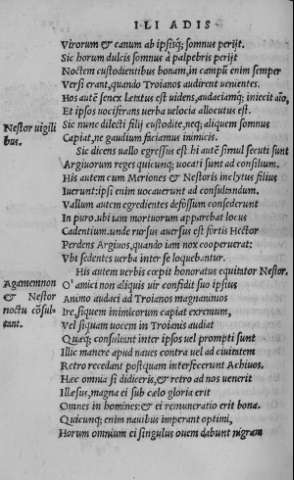 ILIADIS
Virorum & canum ab ipsisq; somnus perijt.
Sic horum dulcis somnus à palpebris perijt
Noctem custodientibus bonam, in campũ enim semper
Versi erant, quando Troianos audirent uenientes.
Hos autẽ senex Lætatus est uidens, audaciamq; iniecit aĩo,
Et ipsos uociferans uerba uelocia allocutus est.
Nestor uigili
bus.
Sic nunc dilecti filij custodite, neq; aliquem somnus
Capiat, ne gaudium faciamus inimicis.
Sic dicens uallo egressus est. hi autẽ simul secuti sunt
Argiuorum reges quicunq; uocati sunt ad consilium.
His autem cum Meriones & Nestoris inclytus filius
Iuerunt: ipsi enim uocauerunt ad consulendum.
Vallum autem egredientes defossum consederunt
In puro. ubi iam mortuorum apparebat locus
Cadentium. unde rursus auersus est fortis Hector
Perdens Argiuos, quando iam nox cooperuerat:
Vbi sedentes uerba inter se loquebantur.
His autem uerbis cœpit honoratus equitator Nestor.
Agamemnon
& Nestor
noctu cõsul-
tant.
O' amici non aliquis uir confidit suo ipsius
Animo audaci ad Troianos magnanimos
Ire, siquem inimicorum capiat extremum,
Vel siquam uocem in Troianis audiat
Quæq; consultent inter ipsos uel prompti sunt
Illic manere apud naues contra uel ad ciuitatem
Retro recedant postquam interfecerunt Achiuos.
Hæc omnia si didiceris, & retro ad nos uenerit
Illæsus, magna ei sub cælo gloria erit
Omnes in homines: & ei remuneratio erit bona.
Quicunq; enim nauibus imperant optimi,
Horum omnium ei singulus ouem dabunt nigram